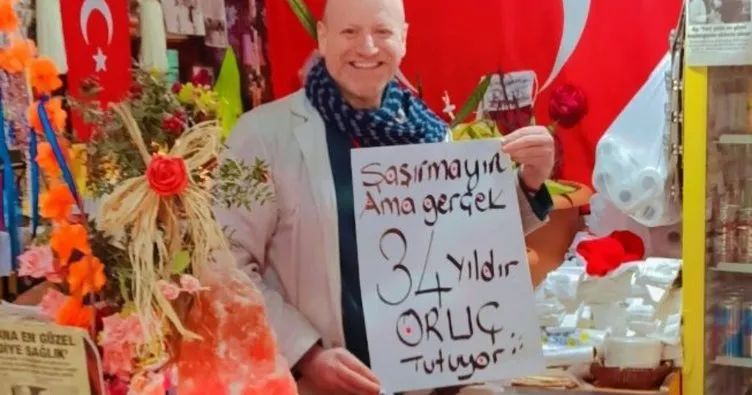 Şaşırmayın
Ama gerçek
34 Yıldır
ORUÇ
Tutuyor
ANA EN GÜZEL
DİYE SAĞLIK'